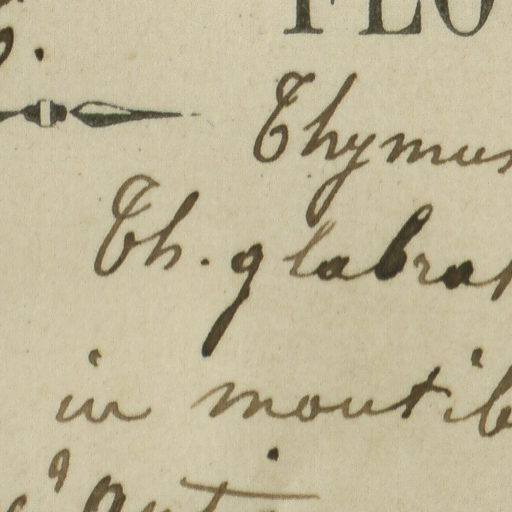 FLO
Thymus
Th. glabrat
in montib